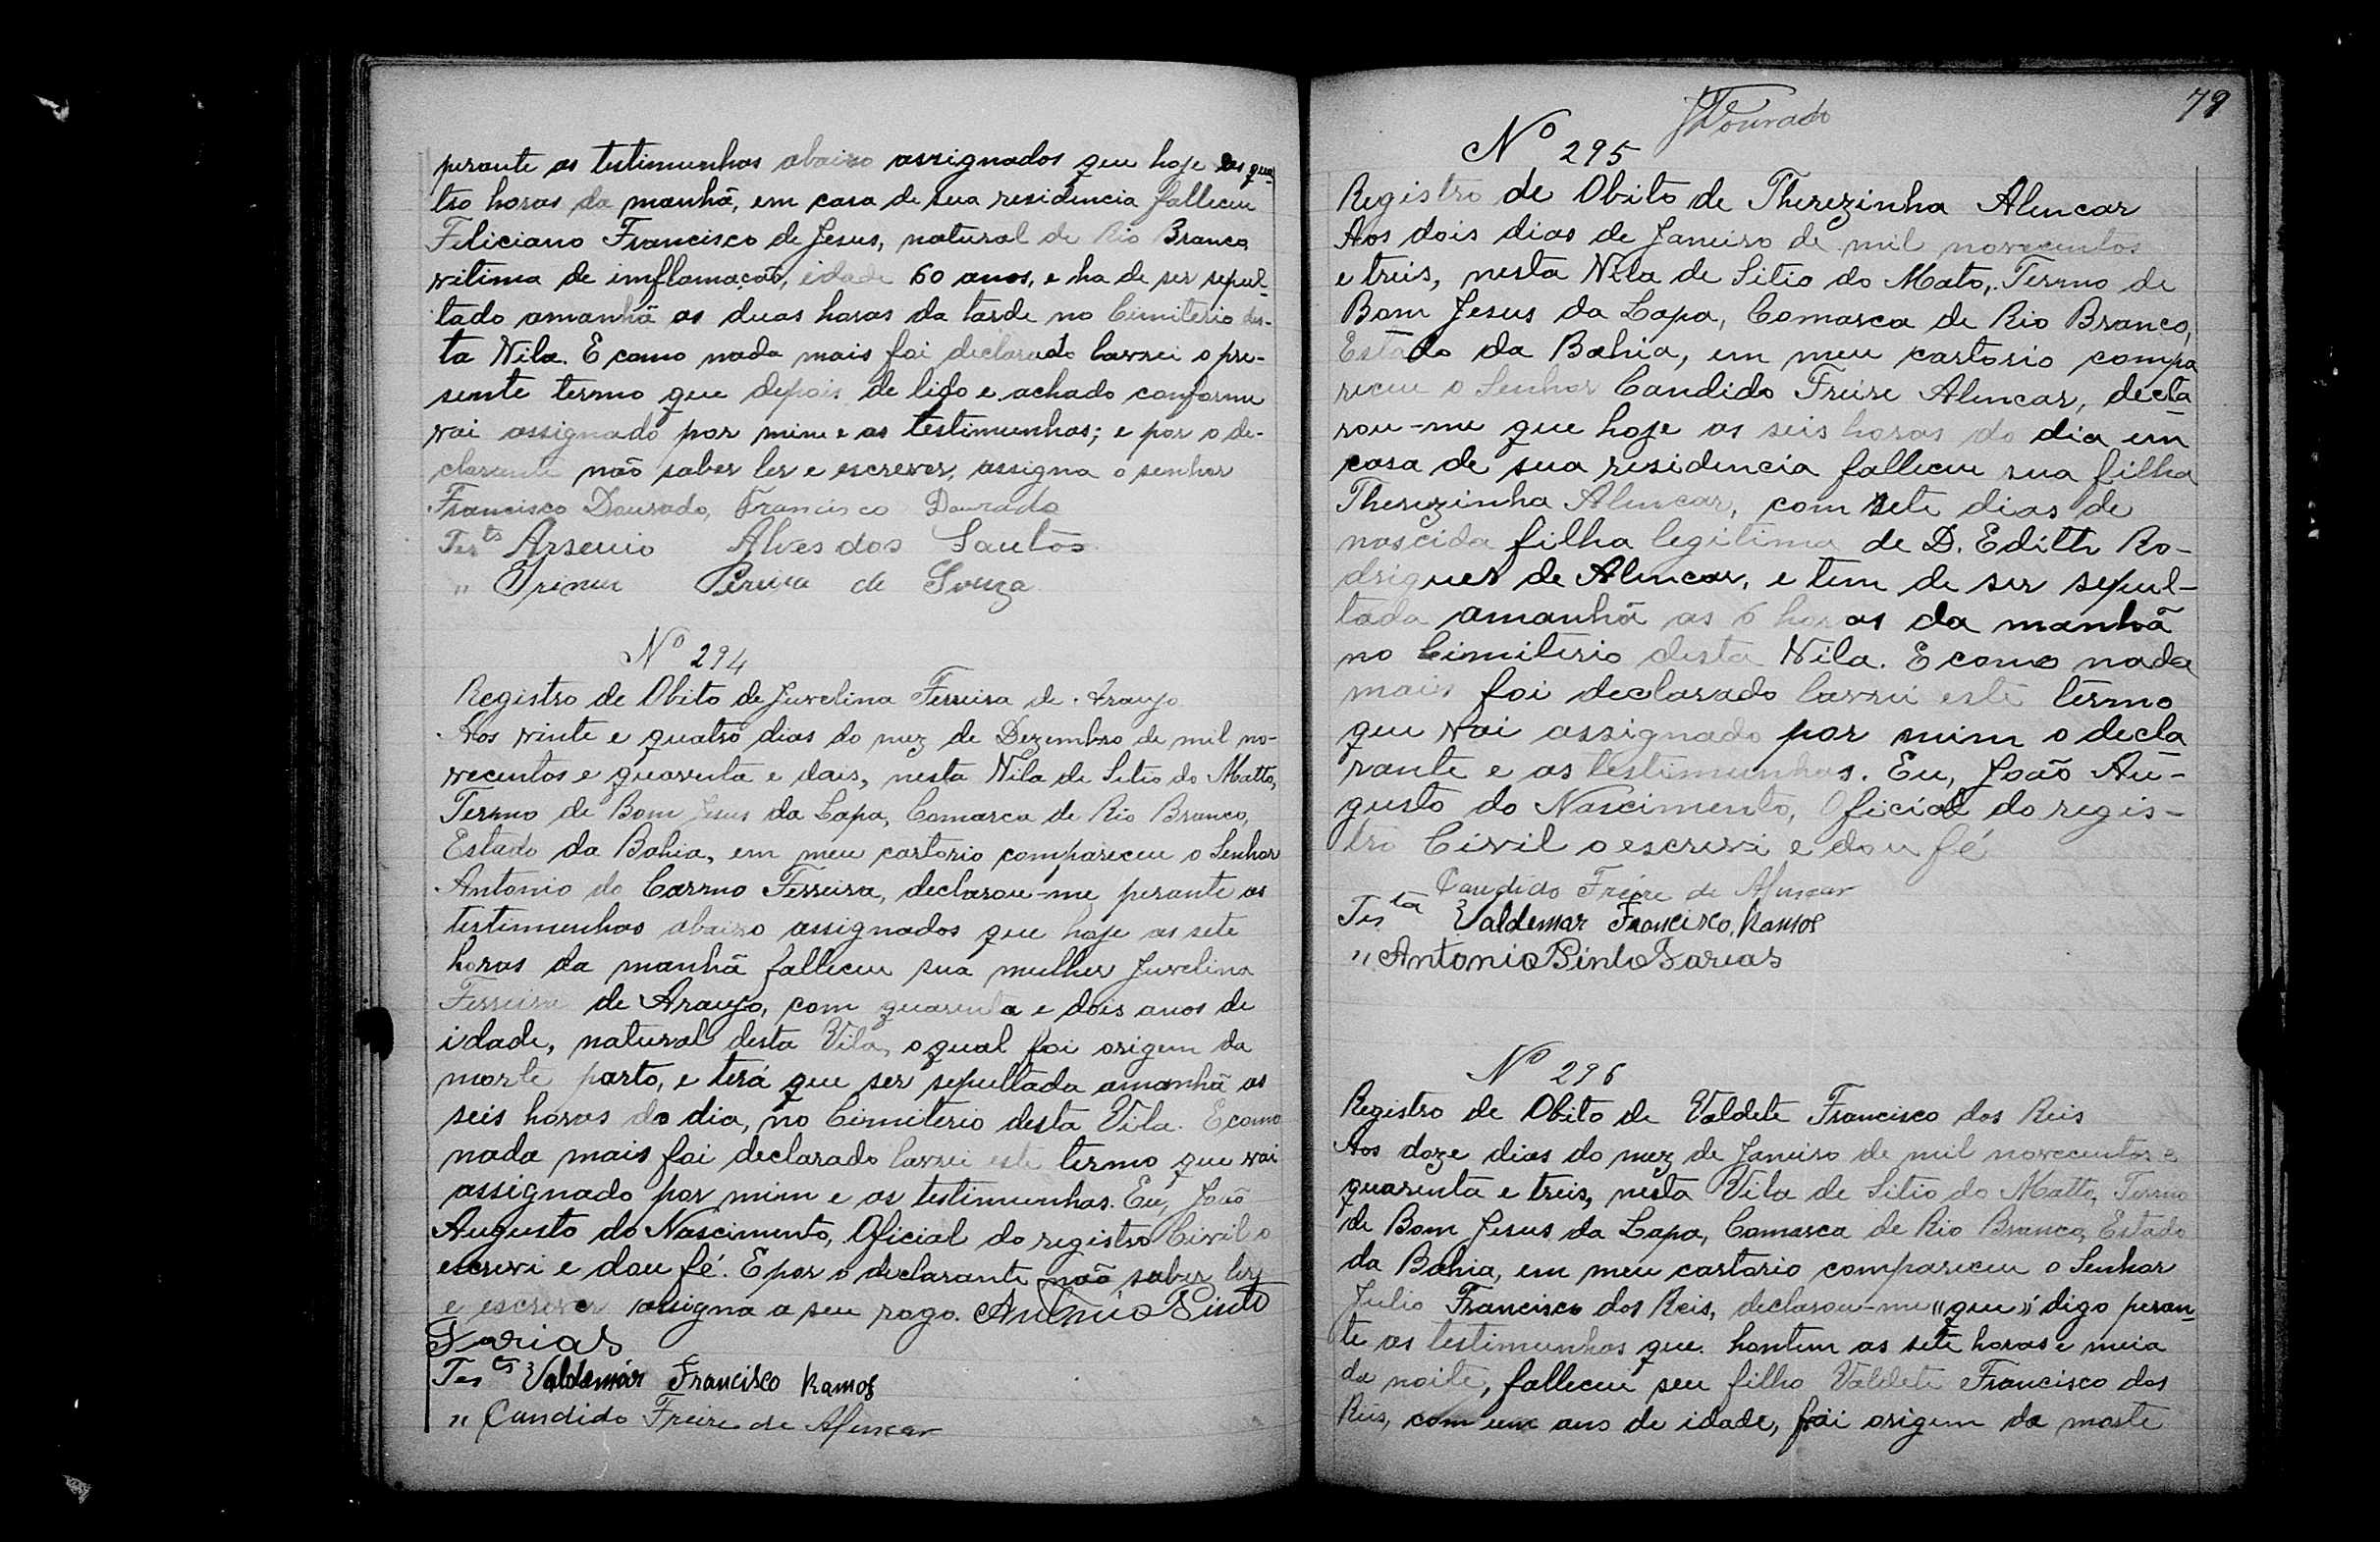 perante as testimunhas abaixo assignados que hoje as qua-
tro horas da manhã, em casa de sua residencia falleceu
Feliciano Francisco de Jesus, natural de Rio Branco
vitima de imflamação, idade 60 anos, e ha de ser sepul-
tado amanhã as duas horas da tarde no Cimiterio des-
ta Vila. E como nada mais foi declarado lavrei o pre-
sente termo que depois de lido e achado conforme
vai assignado por mim e as testimunhas; e por o de-
clarante não saber ler e escrever, assigna o senhor
Francisco Dourado, Francisco Dourado
Tests Arsenio Alves dos Santos
" Irineu Pereira de Souza
Nº 294
Registro de Obito de Juvelina Ferreira de Araujo
Aos vinte e quatro dias do mez de Dezembro de mil no-
vecentos e quarenta e dois, nesta Vila de Sitio do Matto,
Termo de Bom Jesus da Lapa, Comarca de Rio Branco,
Estado da Bahia, em meu cartorio compareceu o Senhor
Antonio do Carmo Ferreira, declarou-me perante as
testimunhas abaixo assignados que hoje as sete
horas da manhã falleceu sua mulher Juvelina
Ferreira de Araujo, com quarenta e dois anos de
idade, natural desta Vila, o qual foi origem da
morte parto, e terá que ser sepultada amanhã as
seis horas do dia, no Cimiterio desta Vila. E como
nada mais foi declarado lavrei este termo que vai
assignado por mim e as testimunhas. Eu, João
Augusto do Nascimento, Oficial do registro Civil o
escrevi e dou fé. E por o declarante não saber ler
e escrever assigna a seu rogo. Antonio Pinto
Farias
Tests Valdemar Francisco Ramos
" Candido Freire de Alencar
JDourado
79
Nº 295
Registro de Obito de Therezinha Alencar
Aos dois dias de Janeiro de mil novecentos
e treis, nesta Vila de Sitio do Mato, Termo de
Bom Jesus da Lapa, Comarca de Rio Branco,
Estado da Bahia, em meu cartorio compa
receu o Senhor Candido Freire Alencar, decla-
rou-me que hoje as seis horas do dia em
casa de sua residencia falleceu sua filha
Therezinha Alencar, com sete dias de
nascida filha legitima de D. Edith Ro-
drigues de Alencar, e tem de ser sepul-
tada amanhã as 6 horas da manhã
no Cimiterio desta Vila. E como nada
mais foi declarado lavrei este termo
que vai assignado por mim o decla-
rante e as testimunhas. Eu, João Au-
gusto do Nascimento, Oficial do regis-
tro Civil o escrevi e dou fé
Candido Freire de Alencar
Testa Valdemar Francisco Ramos
" Antonio Pinto Farias
Nº 296
Registro de Obito de Valdete Francisco dos Reis
Aos doze dias do mez de Janeiro de mil novecentos e
quarenta e treis, nesta Vila de Sitio do Matto, Termo
de Bom Jesus da Lapa, Comarca de Rio Branco, Estado
da Bahia, em meu cartorio compareceu o Senhor
Julio Francisco dos Reis, declarou-me "que" digo peran-
te as testimunhas que hontem as sete horas e meia
da noite, falleceu seu filho Valdete Francisco dos
Reis, com um ano de idade, foi origem da morte